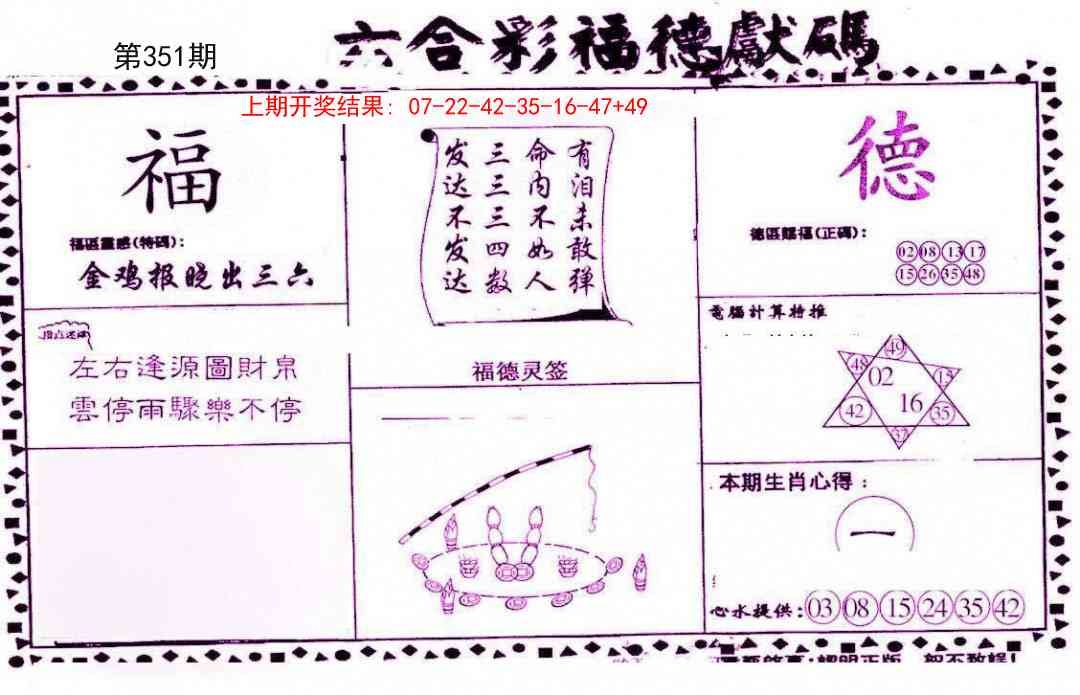 六合彩福德獻碼
第351期
上期开奖结果: 07-22-42-35-16-47+49
福
福區靈感(特碼):
金鸡报晓出三六
左右逢源圖財帛
雲停雨驟樂不停
有泪未敢弹
命内不如人
三三三四数
发达不发达
福德灵签
德
德區賜福(正碼):
02 08 13 17
15 26 35 48
電腦計算特推
49
48 02 15
42 16 35
37
本期生肖心得:
一
心水提供: 03 08 15 24 35 42